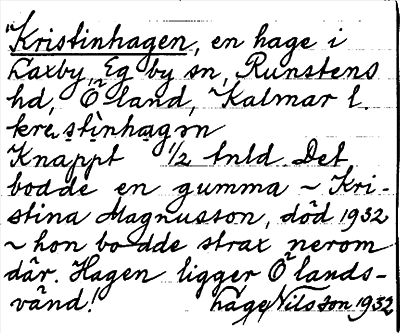 "Kristinhagen, en hage i
Laxby, Eg by sn, Runstens
hd, Öland, Kalmar l.
kre̱stìnha̱gǝn
Knappt 1/2 tnld. Det
bodde en gumma ~ Kri-
stina Magnusson, död 1932
~ hon bodde strax nerom
där. Hagen ligger Ölands-
vänd! Hage Nilsson 1932